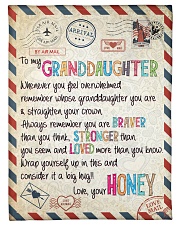 BY AIR MAIL
To my GRANDDAUGHTER
Whenever you feel overwhelmed
remember whose granddaughter you are
& straighten your crown.
Always remember you are BRAVER
than you think, STRONGER than
you seem and LOVED more than you know.
Wrap yourself up in this and
consider it a big hug!!
Love, your HONEY
LOVE MAIL